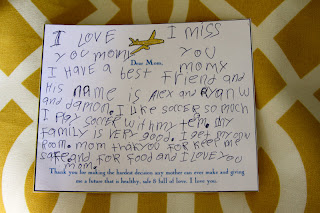 I LOVE I MISS
YOU mom YOU
Dear Mom,
I HAVE a best momy
His NAME is Friend and
and damon. Alex and RyanW
I like soccer so much
I PLAY soccer with my tem. my
FAMILY is VERY good. I get my own
ROOM. mom thakyou for keep me
safe. and for food and I LOVE YOU
mom.
Thank you for making the hardest decision any mother can ever make and giving
me a future that is healthy, safe & full of love. I love you.